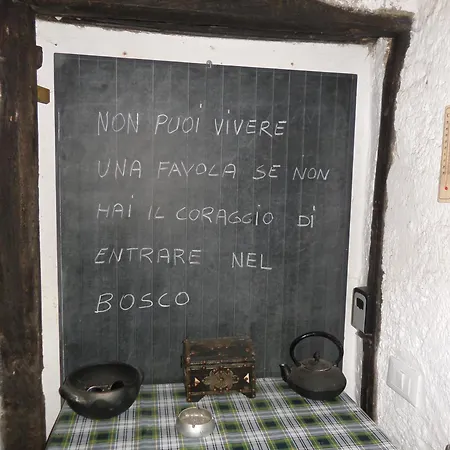 NON PUOI VIVERE
UNA FAVOLA SE NON
HAI IL CORAGGIO DI
ENTRARE NEL
BOSCO